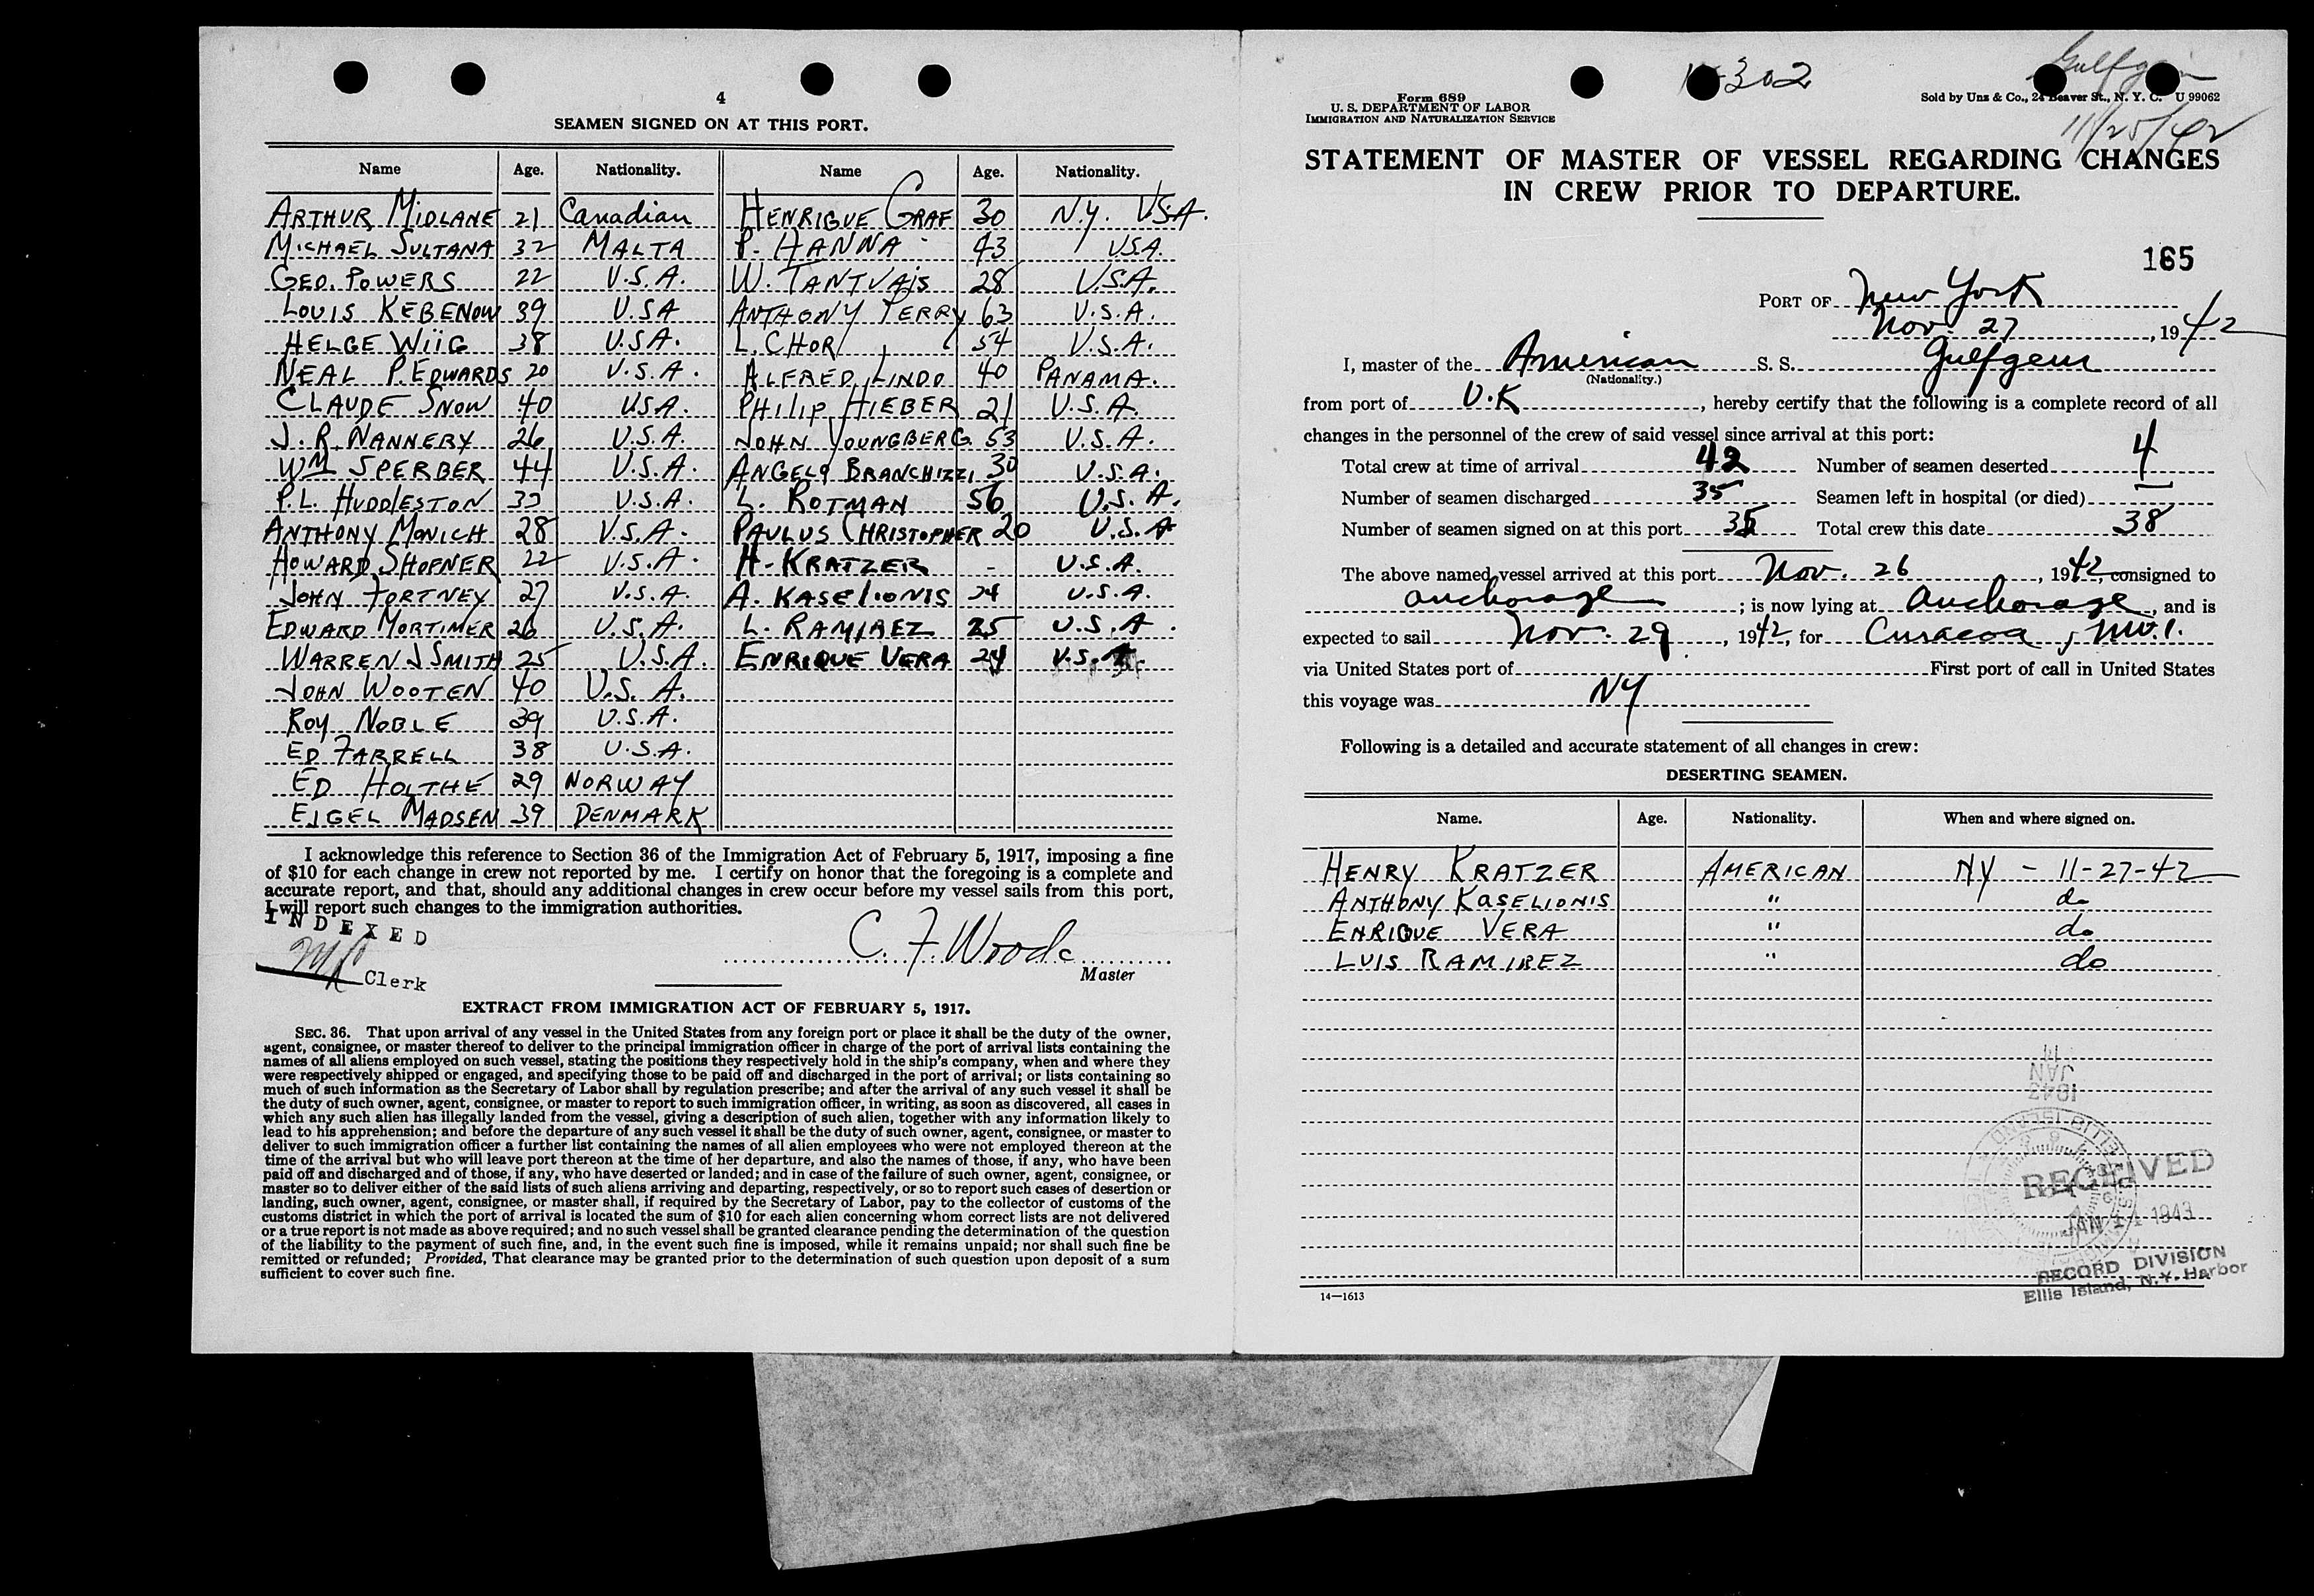 4
SEAMEN SIGNED ON AT THIS PORT.
Name Age. Nationality. Name Age. Nationality.
ARTHUR MIDLANE 21 Canadian HENRIQUE GRAF 30 N.Y. USA.
MICHAEL SULTANA 32 MALTA P. HANNA 43 USA.
GEO. POWERS 22 U.S.A. W. TANTVAIS 28 U.S.A.
LOUIS KEBENOW 39 U.SA ANTHONY PERRY 63 U.S.A.
HELGE WIIG 38 U.SA. L. CHOR 54 U.S.A.
NEAL P. EDWARDS 20 U.S.A. ALFRED LINDO 40 PANAMA.
CLAUDE SNOW 40 USA. PHILIP HIEBER 21 U.S.A.
J. R. NANNERY 26 U.S.A. JOHN YOUNGBERG 53 U.S.A.
WM SPERBER 44 U.S.A. ANGELO BRANCHIZZI 30 U.S.A.
P.L. HUDDLESTON 33 U.S.A. L. ROTMAN 56 U.S.A.
ANTHONY MONICH 28 U.S.A. PAULUS CHRISTOPHER 20 U.S.A
HOWARD SHOFNER 22 U.S.A. H. KRATZER - U.S.A.
JOHN FORTNEY 27 U.S.A. A. KASELIONIS 24 U.S.A.
EDWARD MORTIMER 26 U.S.A. L. RAMIREZ 25 U.S.A.
WARREN J SMITH 25 U.S.A. ENRIQUE VERA 24 U.S.A.
JOHN WOOTEN 40 U.S.A.
ROY NOBLE 39 U.S.A.
ED FARRELL 38 U.S.A.
ED HOLTHE 29 NORWAY
EJGEL MADSEN 39 DENMARK
I acknowledge this reference to Section 36 of the Immigration Act of February 5, 1917, imposing a fine
of $10 for each change in crew not reported by me. I certify on honor that the foregoing is a complete and
accurate report, and that, should any additional changes in crew occur before my vessel sails from this port,
I will report such changes to the immigration authorities.
INDEXED
C. F. Woode
Clerk
Master
EXTRACT FROM IMMIGRATION ACT OF FEBRUARY 5, 1917.
SEC. 36. That upon arrival of any vessel in the United States from any foreign port or place it shall be the duty of the owner,
agent, consignee, or master thereof to deliver to the principal immigration officer in charge of the port of arrival lists containing the
names of all aliens employed on such vessel, stating the positions they respectively hold in the ship's company, when and where they
were respectively shipped or engaged, and specifying those to be paid off and discharged in the port of arrival; or lists containing so
much of such information as the Secretary of Labor shall by regulation prescribe; and after the arrival of any such vessel it shall be
the duty of such owner, agent, consignee, or master to report to such immigration officer, in writing, as soon as discovered, all cases in
which any such alien has illegally landed from the vessel, giving a description of such alien, together with any information likely to
lead to his apprehension; and before the departure of any such vessel it shall be the duty of such owner, agent, consignee, or master to
deliver to such immigration officer a further list containing the names of all alien employees who were not employed thereon at the
time of the arrival but who will leave port thereon at the time of her departure, and also the names of those, if any, who have been
paid off and discharged and of those, if any, who have deserted or landed; and in case of the failure of such owner, agent, consignee, or
master so to deliver either of the said lists of such aliens arriving and departing, respectively, or so to report such cases of desertion or
landing, such owner, agent, consignee, or master shall, if required by the Secretary of Labor, pay to the collector of customs of the
customs district in which the port of arrival is located the sum of $10 for each alien concerning whom correct lists are not delivered
or a true report is not made as above required; and no such vessel shall be granted clearance pending the determination of the question
of the liability to the payment of such fine, and, in the event such fine is imposed, while it remains unpaid; nor shall such fine be
remitted or refunded; Provided, That clearance may be granted prior to the determination of such question upon deposit of a sum
sufficient to cover such fine.
302
Gulfgem
Form 689
U. S. DEPARTMENT OF LABOR
IMMIGRATION AND NATURALIZATION SERVICE
Sold by Unz & Co., 24 Beaver St., N. Y. C. U 99062
11/25/42
STATEMENT OF MASTER OF VESSEL REGARDING CHANGES
IN CREW PRIOR TO DEPARTURE.
165
PORT OF New York
Nov. 27, 1942
I, master of the American S. S. Gulfgem
(Nationality.)
from port of U.K, hereby certify that the following is a complete record of all
changes in the personnel of the crew of said vessel since arrival at this port:
Total crew at time of arrival 42 Number of seamen deserted 4
Number of seamen discharged 35 Seamen left in hospital (or died) —
Number of seamen signed on at this port 35 Total crew this date 38
The above named vessel arrived at this port Nov. 26, 1942 consigned to
anchorage; is now lying at Anchorage, and is
expected to sail Nov. 29, 1942, for Curacoa, NW.I.
via United States port of First port of call in United States
this voyage was NY
Following is a detailed and accurate statement of all changes in crew:
DESERTING SEAMEN.
Name. Age. Nationality. When and where signed on.
HENRY KRATZER AMERICAN NY - 11-27-42
ANTHONY KASELIONIS " do
ENRIQUE VERA " do
LUIS RAMIREZ " do
JAN
1943
RECEIVED
JAN 14 1943
RECORD DIVISION
Ellis Island, N.Y. Harbor
14—1613